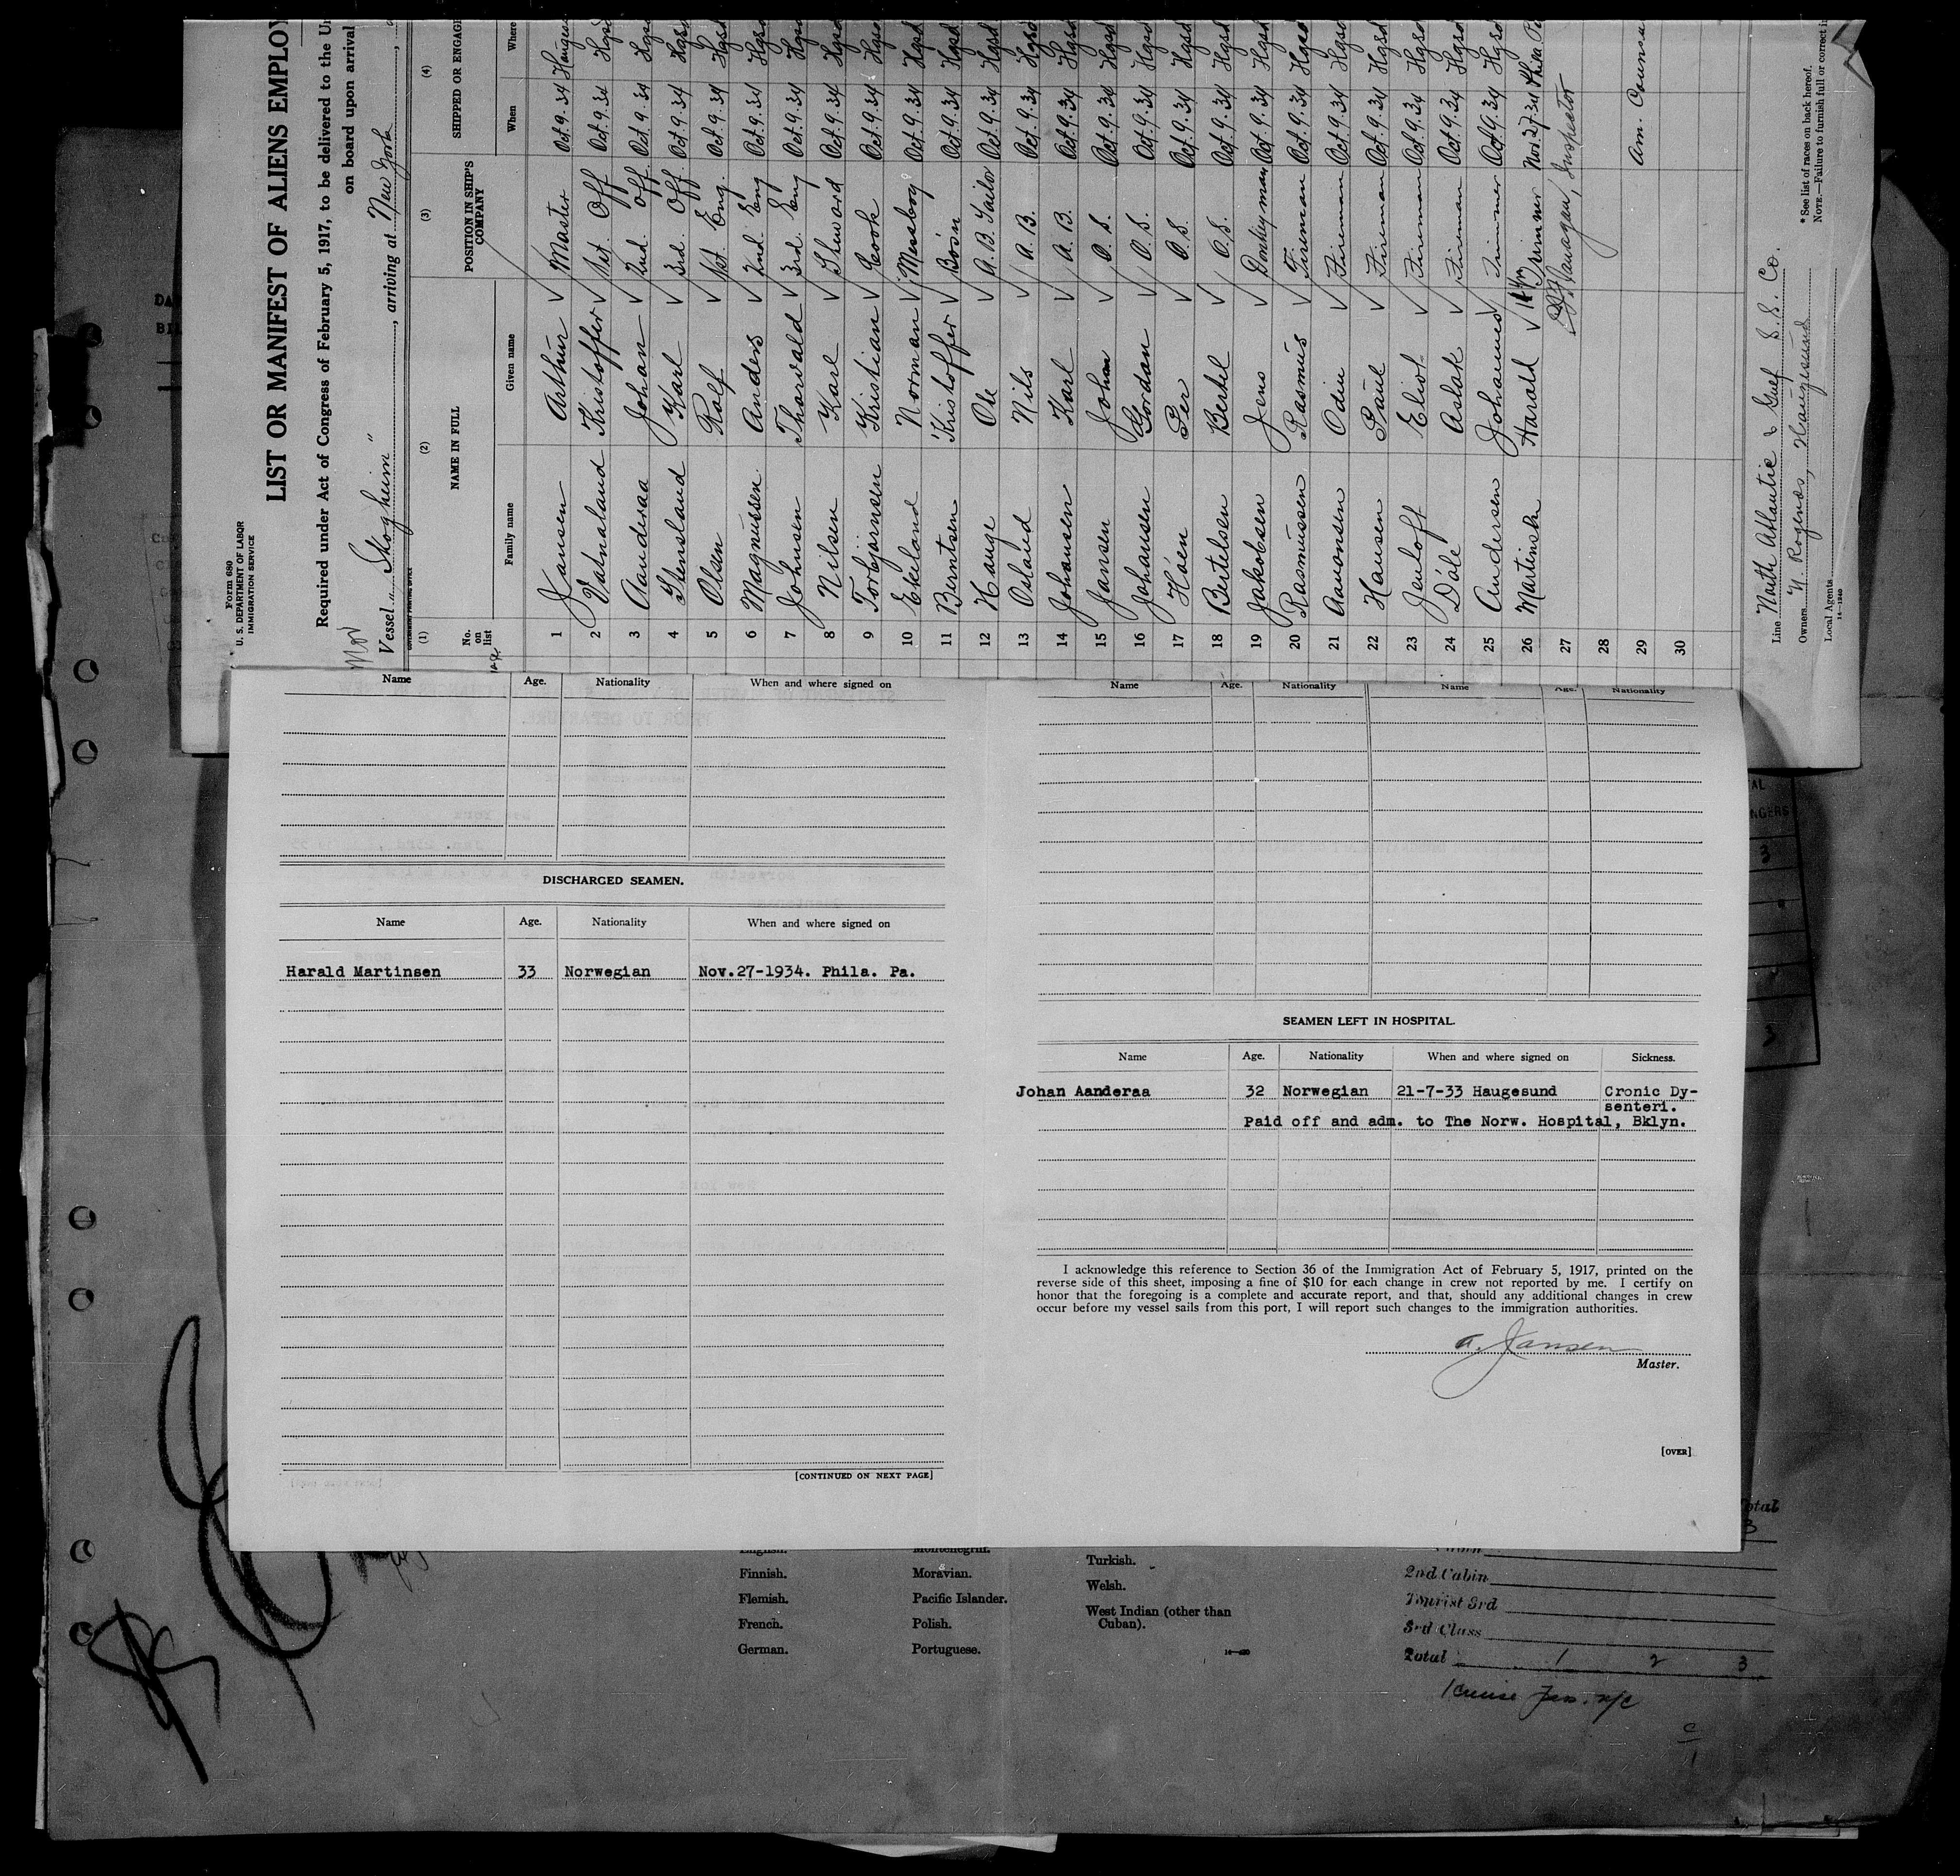 Form 680
U. S. DEPARTMENT OF LABOR
IMMIGRATION SERVICE
LIST OR MANIFEST OF ALIENS EMPLOY
Required under Act of Congress of February 5, 1917, to be delivered to the Un
on board upon arrival
Vessel "Skogheim", arriving at New York,
(1) (2) (3) (4)
No. on list NAME IN FULL POSITION IN SHIP'S COMPANY SHIPPED OR ENGAG
Family name Given name When Where
1 Jansen Arthur Master Oct 9. 34 Hauges
2 Vatnaland Kristoffer 1st. Off Oct. 9. 34 Hgsd
3 Aanderaa Johan 2nd. Off Oct. 9. 34 Hgsd
4 Stensland Karl 3rd. Off Oct. 9. 34 Hgsd
5 Olsen Rolf 1st. Eng. Oct. 9. 34 Hgsd
6 Magnussen Anders 2nd. Eng Oct. 9. 34 Hgsd
7 Johnsen Thorvald 3rd. Eng Oct. 9. 34 Hgsd
8 Nilsen Karl Steward Oct. 9. 34 Hgsd
9 Torbjørnsen Kristian Cook Oct. 9. 34 Hgsd
10 Ekeland Norman Messboy Oct. 9. 34 Hgsd
11 Berntsen Kristoffer Bos'n Oct. 9. 34 Hgsd
12 Hauge Ole A. B. Sailor Oct. 9. 34 Hgsd
13 Osland Nils A. B. Oct. 9. 34 Hgsd
14 Johansen Karl A. B. Oct. 9. 34 Hgsd
15 Jansen Johan O. S. Oct. 9. 34 Hgsd
16 Johansen Gordan O. S. Oct. 9. 34 Hgsd
17 Håen Per O. S. Oct. 9. 34 Hgsd
18 Bertelsen Bertel O. S. Oct. 9. 34 Hgsd
19 Jakobsen Jens Donkeyman Oct. 9. 34 Hgsd
20 Rasmussen Rasmus Fireman Oct. 9. 34 Hgsd
21 Aaronsen Odin Fireman Oct. 9. 34 Hgsd
22 Hansen Paul Fireman Oct. 9. 34 Hgsd
23 Jenloff Eliot Fireman Oct. 9. 34 Hgsd
24 Dåle Aslak Fireman Oct. 9. 34 Hgsd
25 Andersen Johannes Trimmer Oct. 9. 34 Hgsd
26 Martinsen Harald Trimmer Nov. 27. 34 Phila Pa
27 Inspector
28
29 Am. Consu
30
Line North Atlantic & Gulf S.S. Co.
Owners N. Rogenæs, Haugesund
Local Agents
*See list of races on back hereof.
NOTE.—Failure to furnish full or correct i
Name Age. Nationality When and where signed on
DISCHARGED SEAMEN.
Name Age. Nationality When and where signed on
Harald Martinsen 33 Norwegian Nov.27-1934. Phila. Pa.
[CONTINUED ON NEXT PAGE]
Name Age. Nationality Name Age. Nationality
SEAMEN LEFT IN HOSPITAL.
Name Age. Nationality When and where signed on Sickness.
Johan Aanderaa 32 Norwegian 21-7-33 Haugesund Cronic Dy-
senteri.
Paid off and adm. to The Norw. Hospital, Bklyn.
I acknowledge this reference to Section 36 of the Immigration Act of February 5, 1917, printed on the
reverse side of this sheet, imposing a fine of $10 for each change in crew not reported by me. I certify on
honor that the foregoing is a complete and accurate report, and that, should any additional changes in crew
occur before my vessel sails from this port, I will report such changes to the immigration authorities.
A. Jansen
Master.
[OVER]
English.
Finnish.
Flemish.
French.
German.
Montenegrin.
Moravian.
Pacific Islander.
Polish.
Portuguese.
Turkish.
Welsh.
West Indian (other than
Cuban).
2nd Cabin
Tourist 3rd
3rd Class
Total 1 2 3